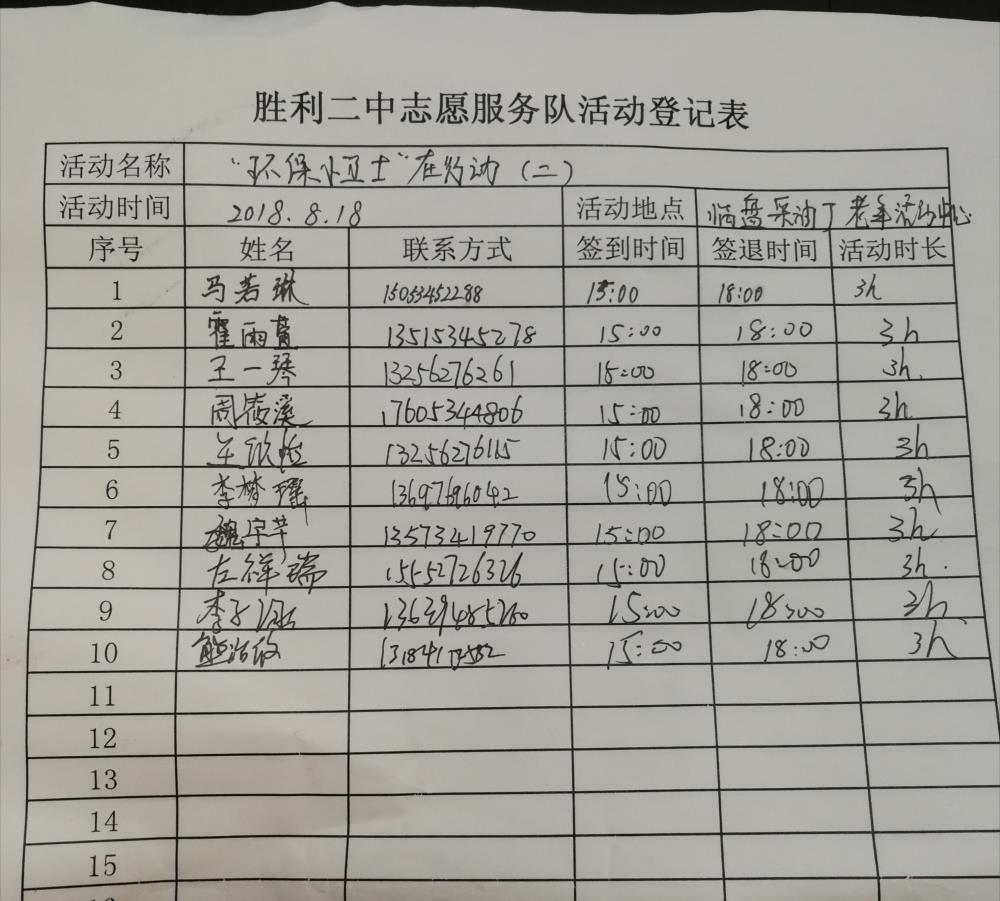 胜利二中志愿服务队活动登记表
活动名称 "环保小卫士"在行动（二）
活动时间 2018.8.18 活动地点 临盘采油厂老年活动中心
序号 姓名 联系方式 签到时间 签退时间 活动时长
1 马若琳 15053452288 15:00 18:00 3h
2 霍雨萱 13515345278 15:00 18:00 3h
3 王一琴 13256276261 15:00 18:00 3h.
4 周筱溪 17605344806 15:00 18:00 3h
5 13256276115 15:00 18:00 3h
6 李梦瑶 13697696042 15:00 18:00 3h
7 魏宇芊 13573419770 15:00 18:00 3h
8 左祥瑞 15552726326 15:00 18:00 3h.
9 李子涵 15:00 18:00 3h
10 15:00 18:00 3h
11
12
13
14
15